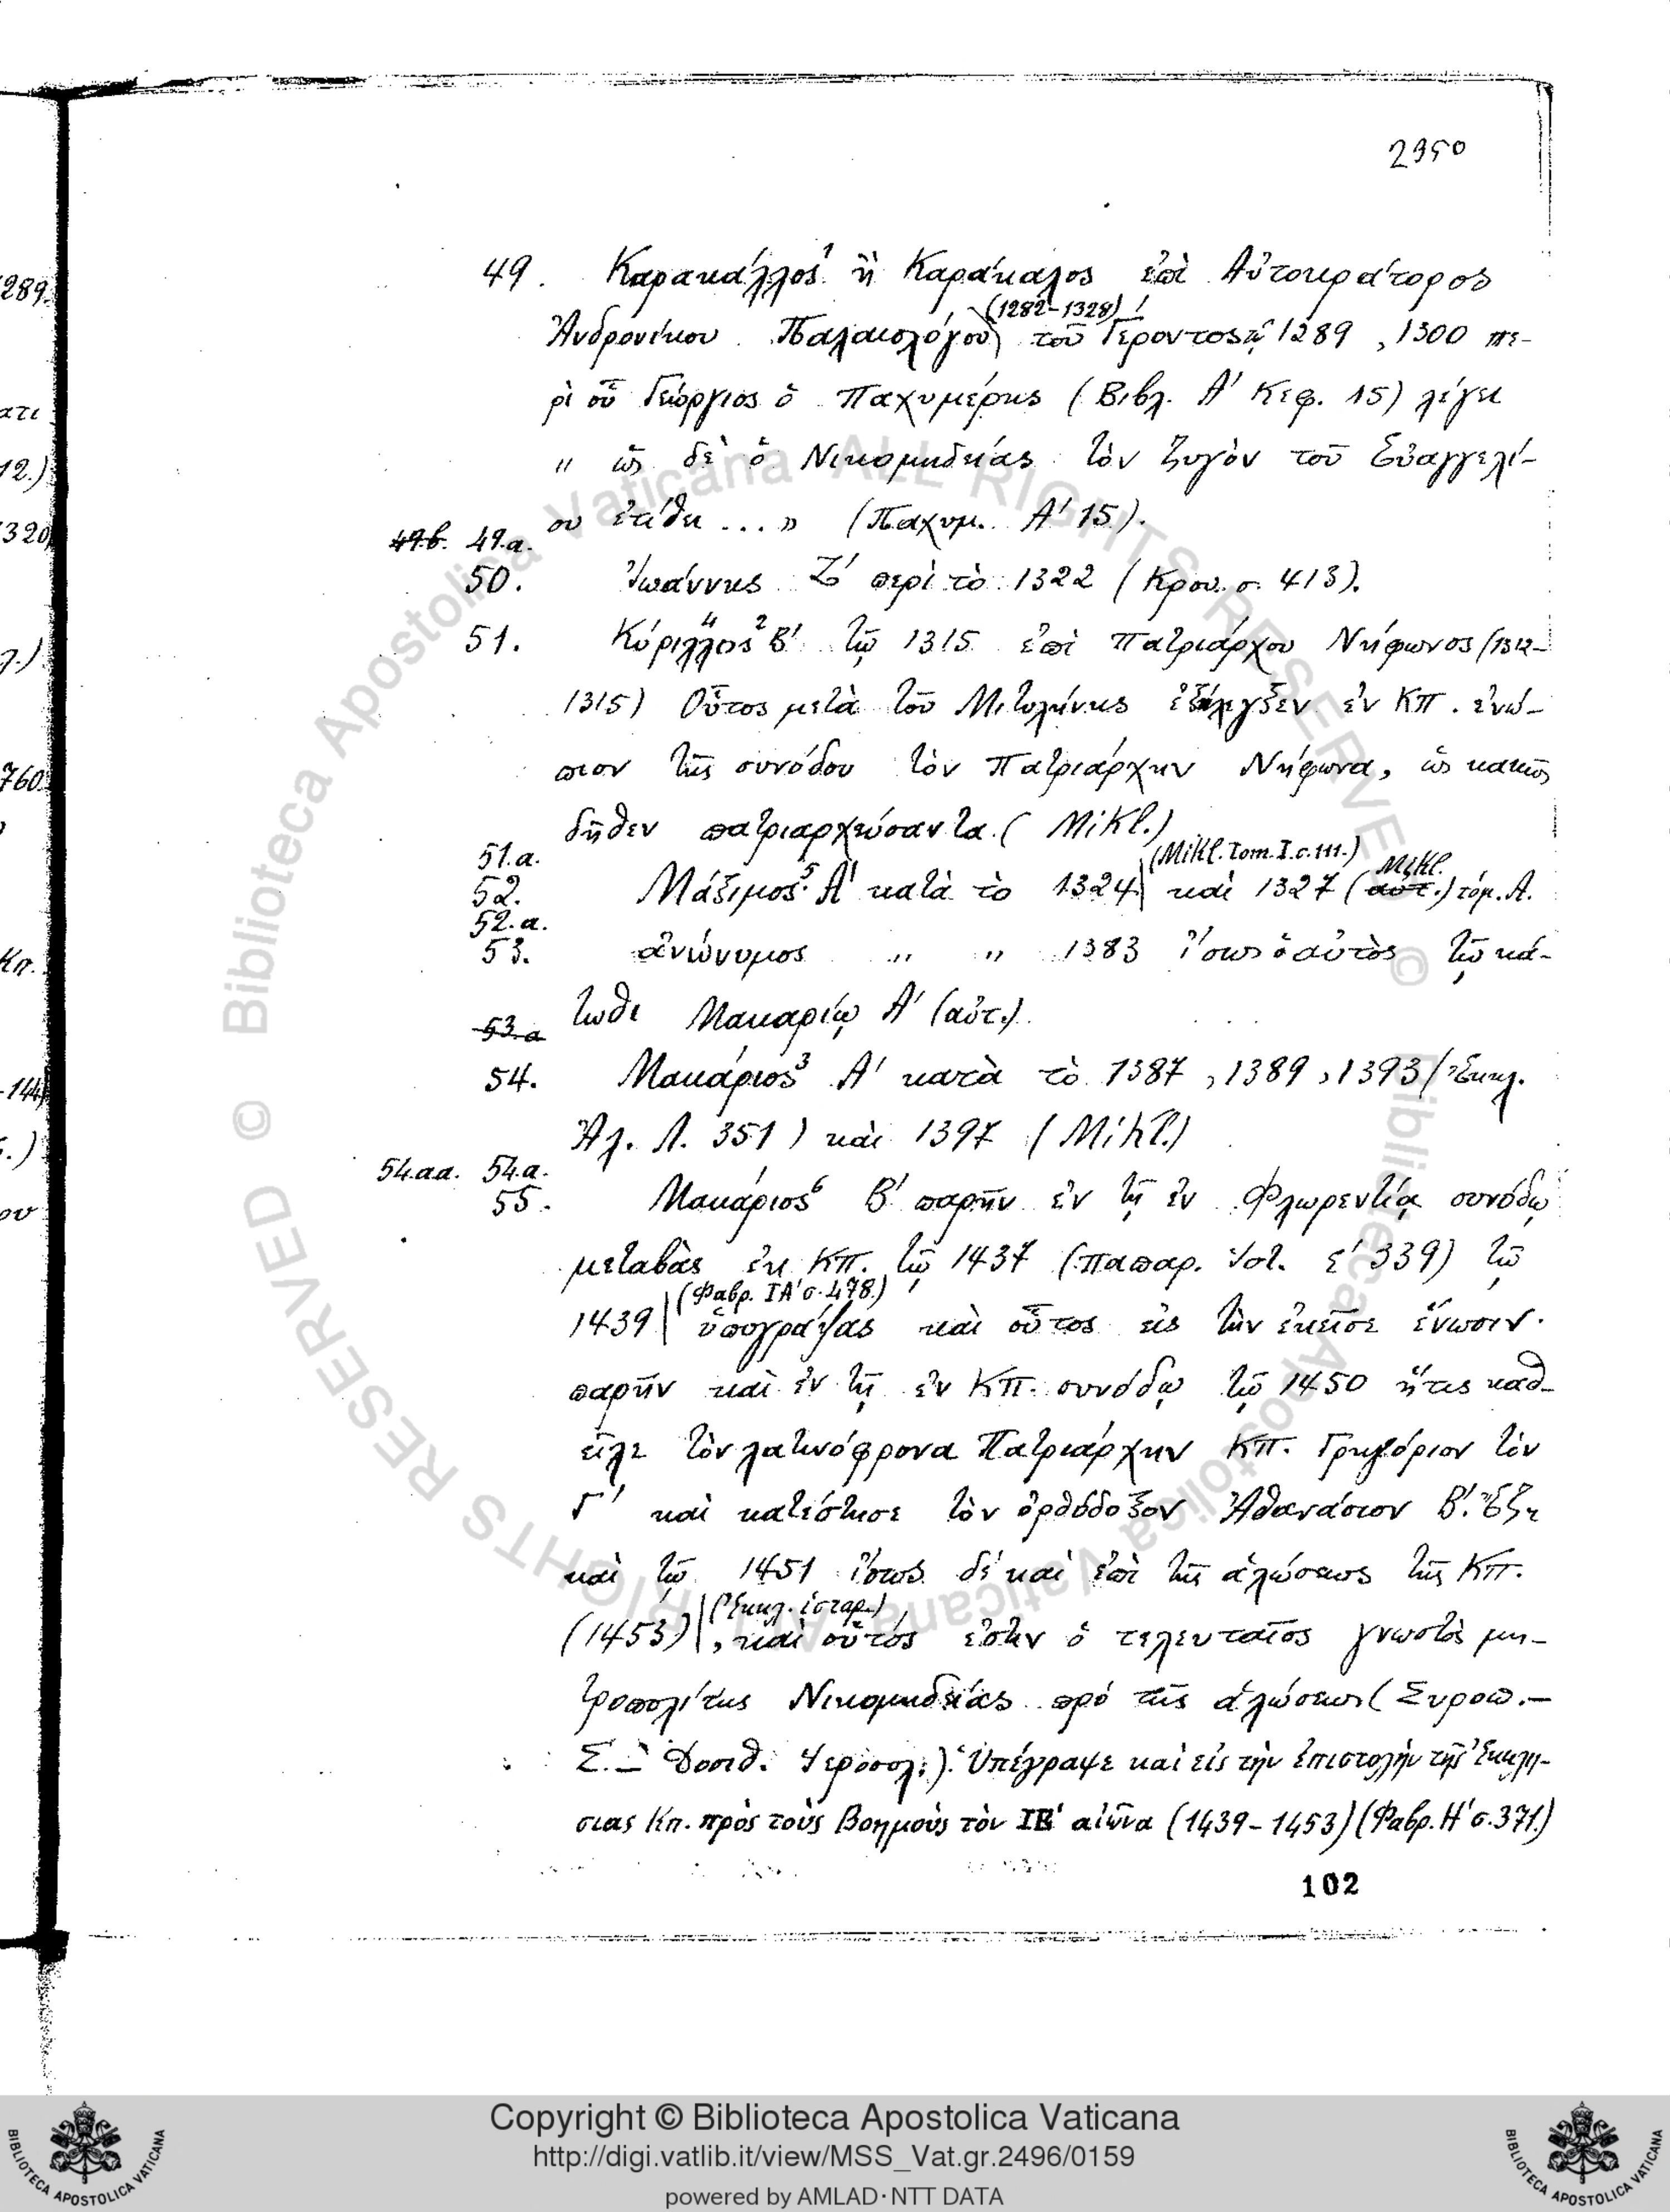 2950
49. Καρακάλλος¹ ἢ Καράκαλος ἐπὶ Αὐτοκράτορος
(1282-1328)
Ἀνδρονίκου Παλαιολόγου τοῦ Γέροντος 1289, 1300 πε-
ρὶ οὗ Γεώργιος ὁ Παχυμέρης (Βιβλ. Α' Κεφ. 15) λέγει
„ ὡς δὲ ὁ Νικομηδείας τὸν ζυγὸν τοῦ Εὐαγγελί-
ου ἐτίθει ...» (Παχυμ. Α' 15).
49.β. 49.α.
50. Ἰωάννης Ζ' περὶ τὸ 1322 (Κρου. σ. 413).
51. Κύριλλος² Β' τῷ 1315 ἐπὶ Πατριάρχου Νήφωνος (1312-
1315) Οὗτος μετὰ τοῦ Μιτυλήνης ἐξήλεγξεν ἐν ΚΠ. ἐνώ-
πιον τῆς συνόδου τὸν Πατριάρχην Νήφωνα, ὡς κακῶς
δῆθεν πατριαρχεύσαντα. (Mikl.)
51.α. (Mikl. Tom. I. c. 111.) Mikl.
52. Μάξιμος⁵ Α' κατὰ τὸ 1324 καὶ 1327 (αὐτ.) τόμ. Α.
52.α.
53. ἀνώνυμος „ „ 1383 ἴσως ὁ αὐτὸς τῷ κά-
τωθι Μακαρίῳ Α' (αὐτ.).
53.α
54. Μακάριος³ Α' κατὰ τὸ 1387, 1389, 1393 (Ἐκκλ.
Ἀλ. Λ. 351) καὶ 1397 (Mikl.)
54.αα. 54.α.
55. Μακάριος⁶ Β' παρῆν ἐν τῇ ἐν Φλωρεντίᾳ συνόδῳ
μεταβὰς ἐκ ΚΠ. τῷ 1437 (Παπαρ. Ἱστ. Ε' 339) τῷ
(Φαβρ. ΙΑ' σ. 478.)
1439 ὑπογράψας καὶ οὗτος εἰς τὴν ἐκεῖσε ἕνωσιν.
παρῆν καὶ ἐν τῇ ἐν ΚΠ. συνόδῳ τῷ 1450 ἥτις καθ-
εῖλε τὸν λατινόφρονα Πατριάρχην ΚΠ. Γρηγόριον τὸν
Γ' καὶ κατέστησε τὸν ὀρθόδοξον Ἀθανάσιον Β'. Ἔζη
καὶ τῷ 1451 ἴσως δὲ καὶ ἐπὶ τῆς ἁλώσεως τῆς ΚΠ.
(Ἐκκλ. ἱσταρ.)
(1453), καὶ οὗτός ἐστιν ὁ τελευταῖος γνωστὸς μη-
τροπολίτης Νικομηδείας πρὸ τῆς ἁλώσεως (Συροπ.—
Σ.— Δοσιθ. Ἱεροσολ.). Ὑπέγραψε καὶ εἰς τὴν ἐπιστολὴν τῆς Ἐκκλη-
σιας Κπ. πρὸς τοὺς Βοημοὺς τὸν ΙΕ' αἰῶνα (1439-1453) (Φαβρ. Η' σ. 371.)
102
Copyright © Biblioteca Apostolica Vaticana
http://digi.vatlib.it/view/MSS_Vat.gr.2496/0159
powered by AMLAD·NTT DATA